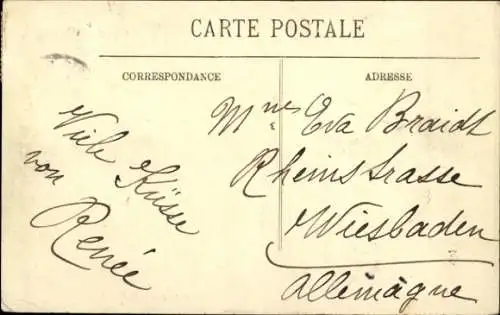 CARTE POSTALE
CORRESPONDANCE
ADRESSE
Viele Küsse
von
Renée
Mme Eva Braidt
Rheinstrasse
Wiesbaden
Allemagne